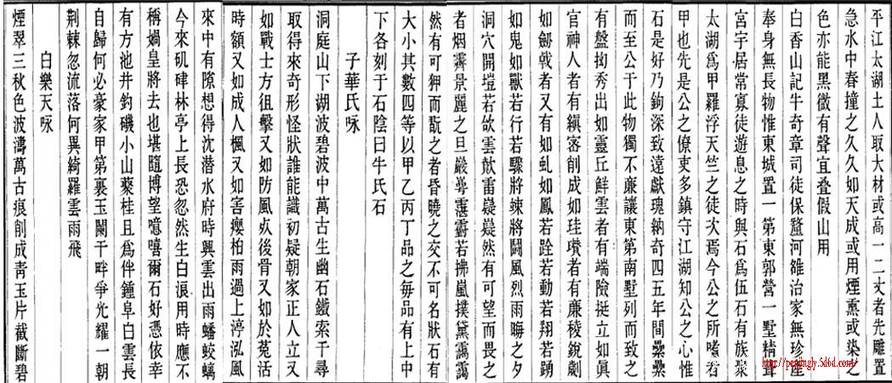 平江太湖土人取大材或高一二丈者先雕置
急水中舂撞之久久如天成或用煙熏或染之
色亦能黑微有聲宜叠假山用
白香山記牛奇章司徒保釐河雒治家無珍產
奉身無長物惟東城置一第東郭營一墅精葺
宮宇居常寡徒遊息之時與石為伍石有族聚
太湖為甲羅浮天竺之徒次焉今公之所嗜者
甲也先是公之僚吏多鎮守江湖知公之心惟
石是好乃鉤深致遠獻瑰納奇四五年間纍纍
而至公于此物獨不廉讓東第南墅列而致之
有盤拗秀出如靈丘鮮雲者有端險挺立如眞
官神人者有縝密削成如珪瓚者有廉稜銳劌
如劒戟者又有如虬如鳳若跧若動若翔若踴
如鬼如獸若行若驟將竦將鬪風烈雨晦之夕
洞穴開㙊若欱雲歕雷嶷嶷然有可望而畏之
者烟霽景麗之旦巖㟧霮䨴若拂嵐撲黛靄靄
然有可狎而翫之者昏曉之交不可名狀石有
大小其數四等以甲乙丙丁品之毎品有上中
下各刻于石陰曰牛氏石
子華氏咏
洞庭山下湖波碧波中萬古生幽石鐵索千尋
取得來奇形怪狀誰能識初疑朝家正人立又
如戰士方狙擊又如防風死後骨又如於菟活
時額又如成人楓又如害癭柏雨過上渟泓風
來中有隙想得沉潛水府時興雲出雨蟠蛟螭
今來矶硉林亭上長恐忽然生白浪用時應不
稱媧皇將去也堪隨博望噫嘻爾石好憑依幸
有方池并釣磯小山藂桂且為伴鍾阜白雲長
自歸何必豪家甲第裏玉闌干畔爭光耀一朝
荆棘忽流落何異綺羅雲雨飛
白樂天咏
煙翠三秋色波濤萬古痕削成青玉片截斷碧
http://pengingly.5d6d.com/